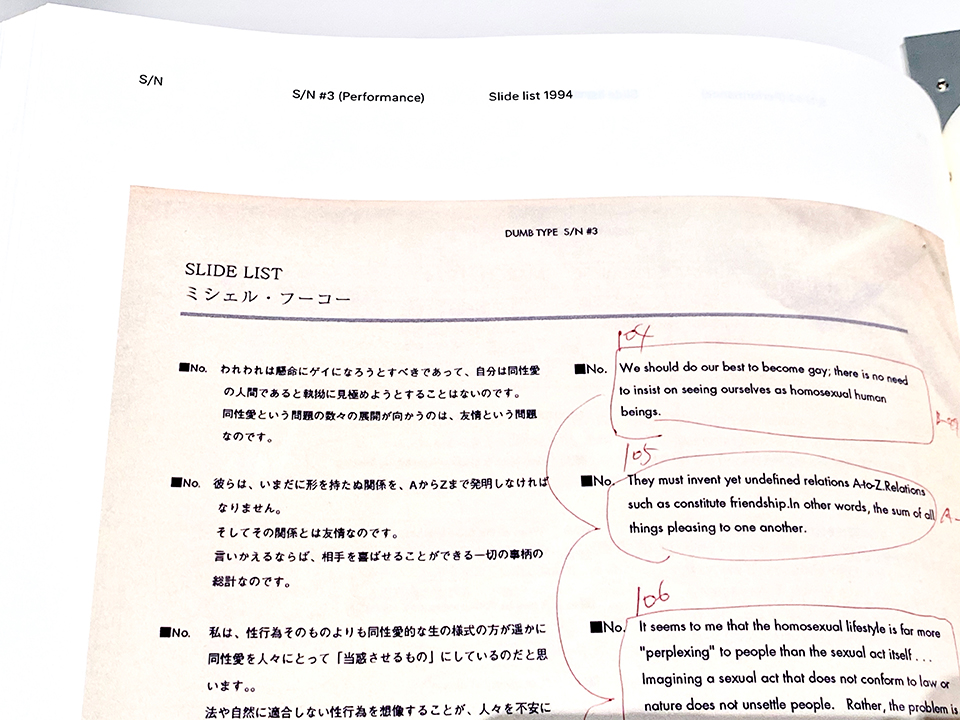 S/N
S/N #3 (Performance)
Slide list 1994
DUMB TYPE S/N #3
SLIDE LIST
ミシェル・フーコー
■No. われわれは懸命にゲイになろうとすべきであって、自分は同性愛
の人間であると執拗に見極めようとすることはないのです。
同性愛という問題の数々の展開が向かうのは、友情という問題
なのです。
104
■No. We should do our best to become gay; there is no need
to insist on seeing ourselves as homosexual human
beings.
■No. 彼らは、いまだに形を持たぬ関係を、AからZまで発明しなければ
なりません。
そしてその関係とは友情なのです。
言いかえるならば、相手を喜ばせることができる一切の事柄の
総計なのです。
105
■No. They must invent yet undefined relations A-to-Z.Relations
such as constitute friendship.In other words, the sum of all
things pleasing to one another.
A-
■No. 私は、性行為そのものよりも同性愛的な生の様式の方が遥かに
同性愛を人々にとって「当惑させるもの」にしているのだと思
います。。
法や自然に適合しない性行為を想像することが、人々を不安に
106
■No. It seems to me that the homosexual lifestyle is far more
"perplexing" to people than the sexual act itself . . .
Imagining a sexual act that does not conform to law or
nature does not unsettle people. Rather, the problem is